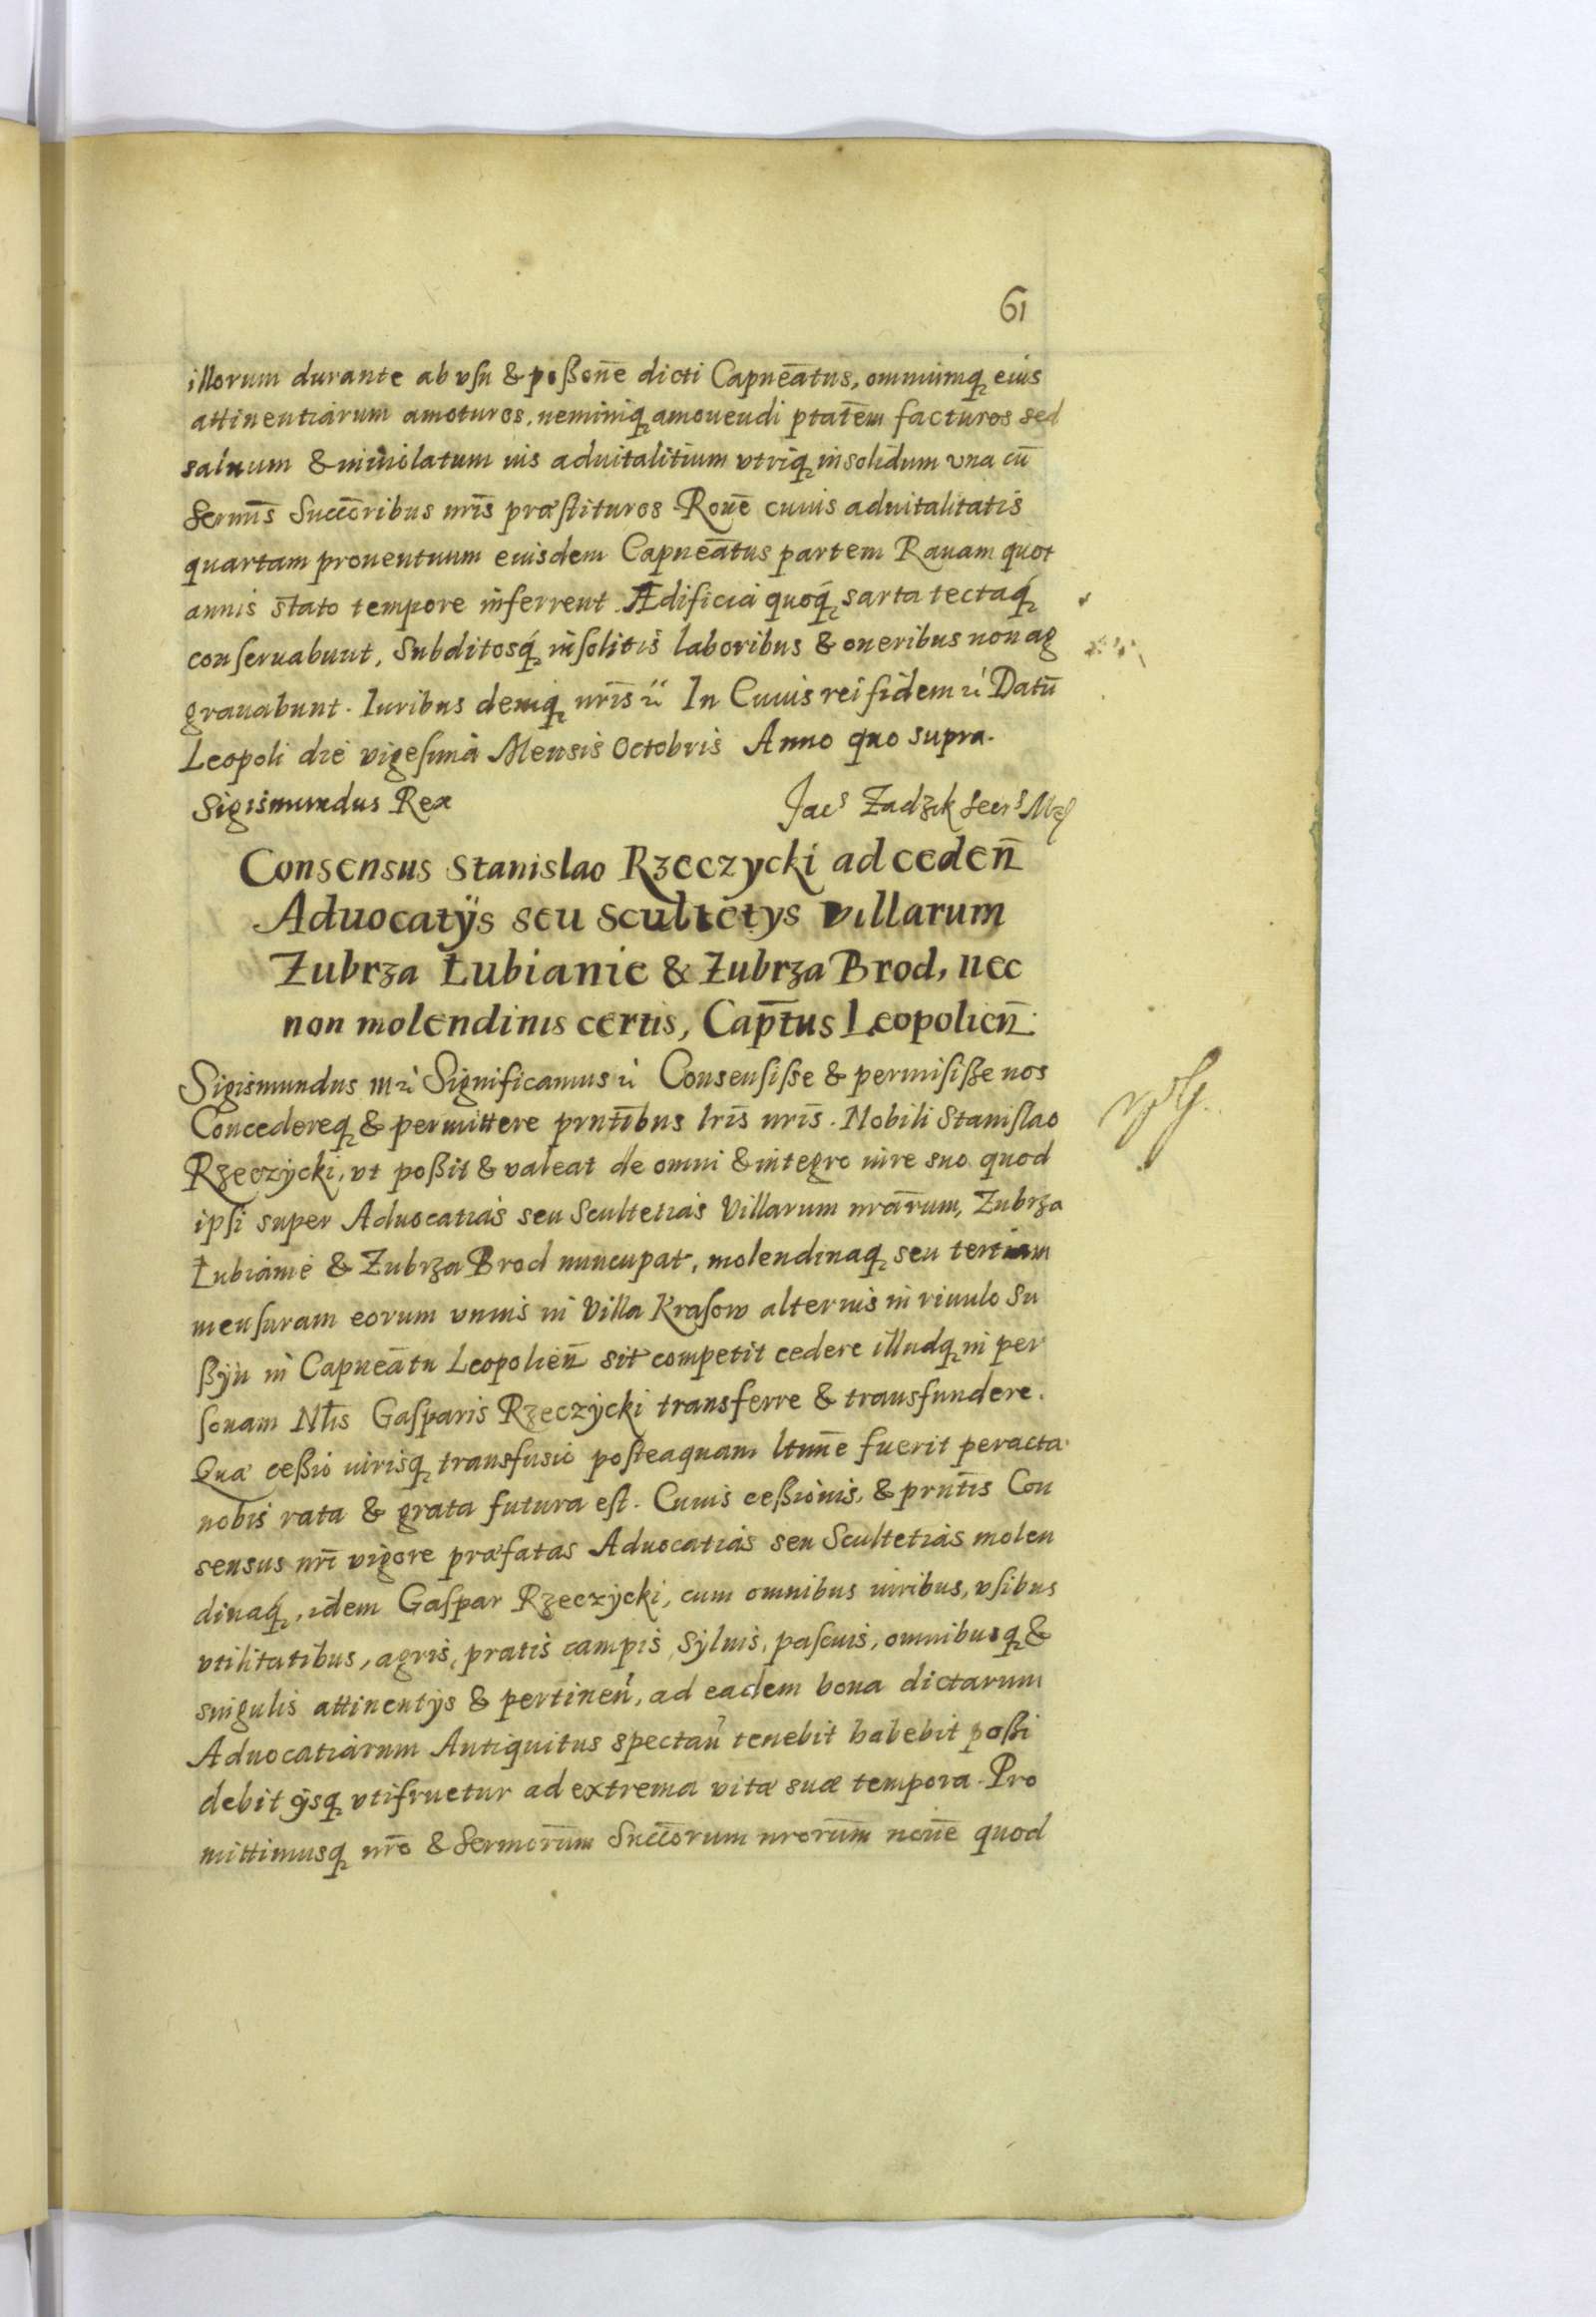 61
illorum durante ab vsu & poßone̅ dicti Capnea̅tus, omniumq; eius
attinentiarum amoturos, neminiq; amouendi ptate̅m facturos sed
saluum & inuiolatum ius aduitalitium vtriq; in solidum vna cu̅
Sermi̅s Succo̅ribus nri̅s præstituros Rone̅ cuius aduitalitatis
quartam prouentuum eiusdem Capnea̅tus partem Rauam quot
annis stato tempore inferrent. Ædificia quoq; sarta tectaq;
conseruabunt, Subditosq; insolitis laboribus & oneribus non ag
grauabunt. Iuribus deniq; nri̅s &c In Cuius rei fidem &c Datu̅
Leopoli die vigesima Mensis Octobris Anno quo supra.
Sigismundus Rex
Jacs Zadzik Secrs
Consensus Stanislao Rzeczycki ad ceden̅
Aduocatÿs seu scultetys villarum
Zubrza Łubianie & Zubrza Brod, nec
non molendinis certis, Cap̅tus Leopolien̅.
Sigismundus III &c Significamus &c Consensisse & permisiße nos
Concedereq; & permittere prnti̅bus lri̅s nri̅s. Nobili Stanislao
Rzeczycki, vt poßit & valeat de omni & integro iure suo quod
ipsi super Aduocatias seu Scultetias Villarum nra̅rum, Zubrza
Łubianie & Zubrza Brod nuncupat, molendinaq; seu tertiam
mensuram eorum vnius in Villa Krasow alterius in riuulo Su
ßÿn in Capnea̅tu Leopolien̅ sit competit cedere illudq; in per
sonam Nli̅s Gasparis Rzeczycki transferre & transfundere.
Quæ ceßio iurisq; transfusio posteaquam ltime̅ fuerit peracta
nobis rata & grata futura est. Cuius ceßionis, & prnti̅s Con
sensus nri̅ vigore præfatas Aduocatias seu Scultetias molen
dinaq; idem Gaspar Rzeczycki, cum omnibus iuribus, vsibus
vtilitatibus, agris, pratis campis Syluis, pascuis, omnibusq; &
singulis attinentÿs & pertinen̅, ad eadem bona dictarum
Aduocatiarum Antiquitus spectan̅ tenebit habebit poßi
debit ÿsq; vtifruetur ad extrema vitæ suæ tempora. Pro
mittimusq; nro̅ & Sermoru̅m Succo̅rum nroru̅m noi̅e quod